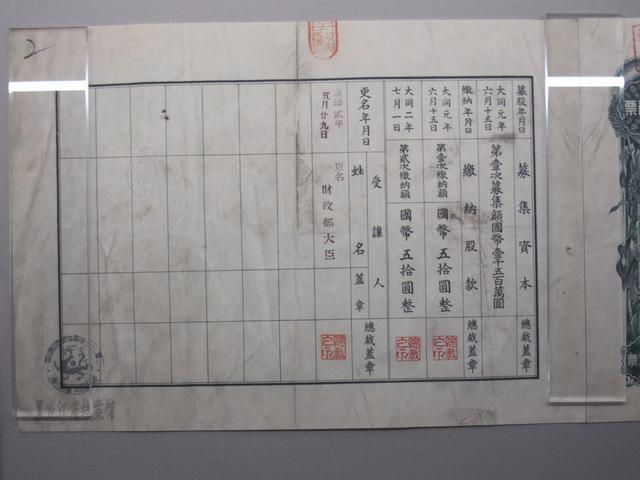 募股年月日
募集資本
總裁蓋章
大同元年
六月十五日
第壹次募集額國幣壹千五百萬圓
繳納年月日
繳納股款
總裁蓋章
大同元年
六月十五日
第壹次繳納額
國幣五拾圓整
總裁之印
大同二年
七月一日
第貳次繳納額
國幣五拾圓整
總裁之印
更名年月日
受讓人
姓名
蓋章
總裁蓋章
康德貳年
五月廿九日
更名
財政部大臣
總裁之印
2
黑龙江省档案馆
票